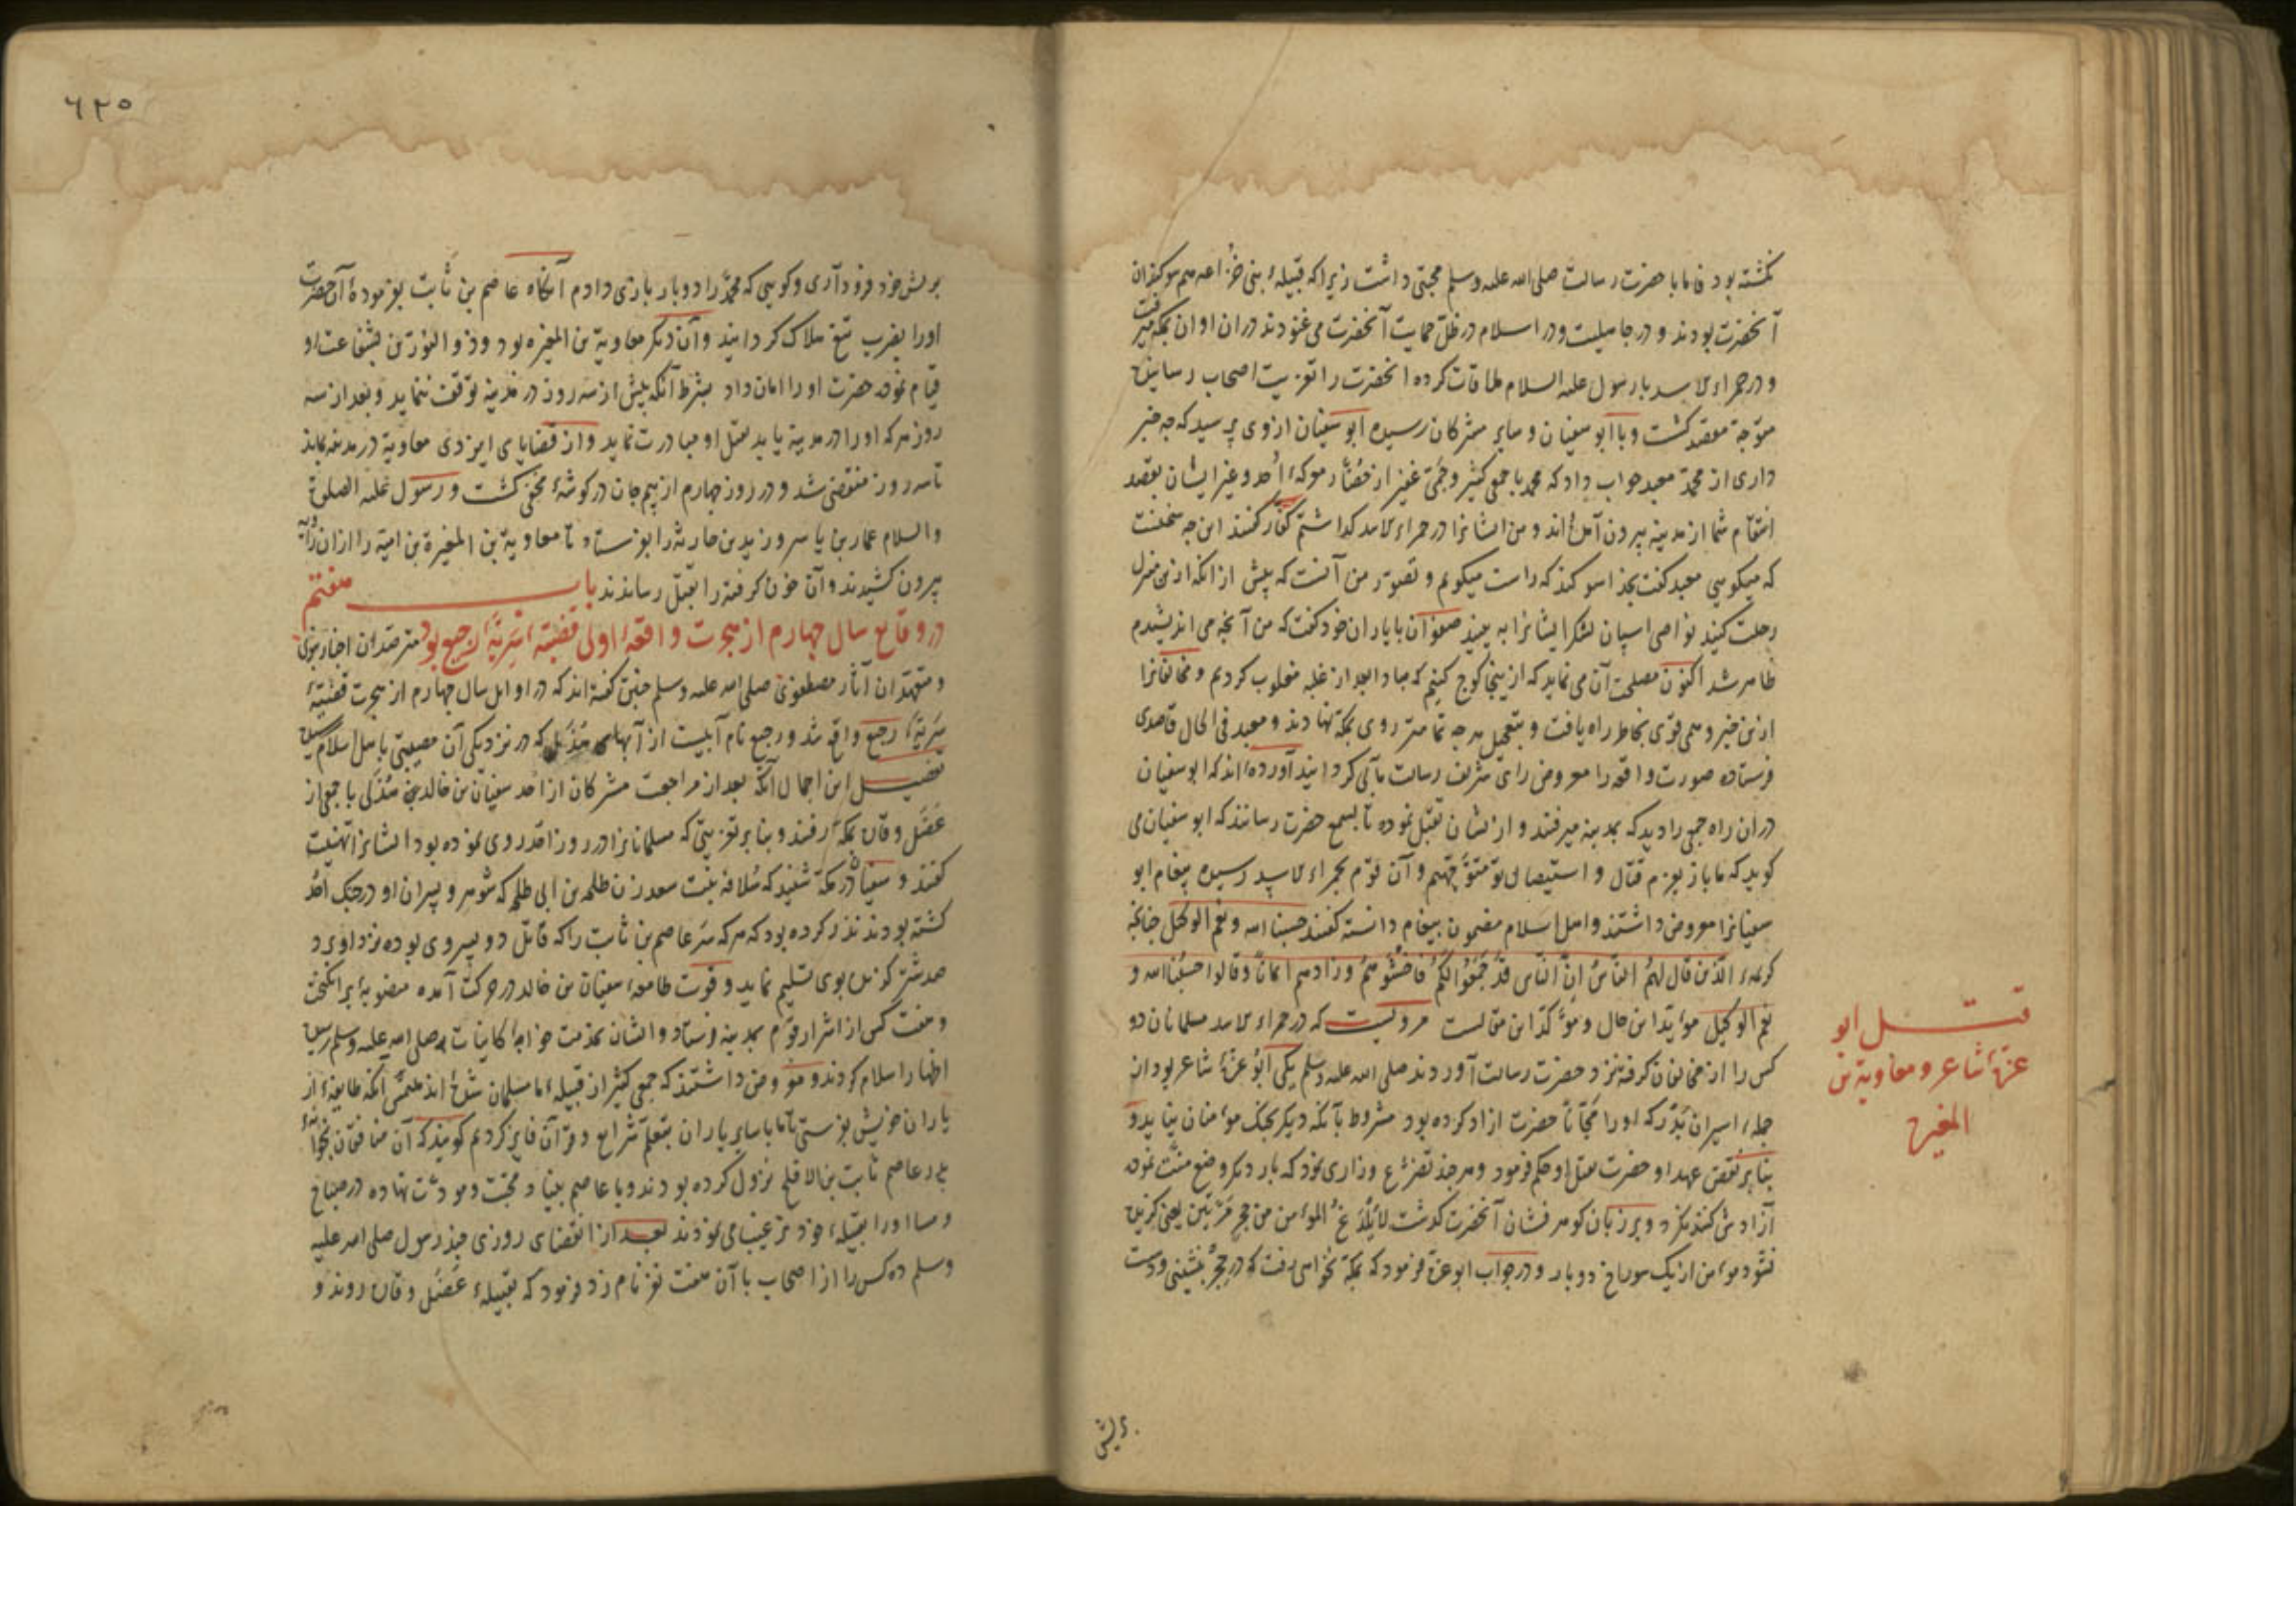 نگشته بود فاما با حضرت رسالت صلی الله علیه وسلم محبتی داشت زیرا که قبیلهٔ بنی خزاعه هم سوکندان
آنحضرت بودند و در جاهلیت و در اسلام در ظلّ حمایت آنحضرت می غنودند در ان اوان بمکه میرفت
و در حمراء الاسد با رسول علیه السلام ملاقات کرده انحضرت را تعزیت اصحاب رسانیده
متوجه مقصد کشت و با ابو سفیان و سایر مشرکان رسیده ابو سفیان از وی پرسید که چه خبر
داری از محمد معبد جواب داد که محمد با جمعی کثیر و جمّی غفیر از حُضّار معرکهٔ اُحد و غیر ایشان بقصد
انتقام شما از مدینه بیرون آمده اند و من ایشانرا در حمراء الاسد کذاشتم کفار کفتند این چه سخنست
که میکویی معبد کفت بخدا سوکند که راست میکویم و تصور من آنست که پیش از انکه ازین منزل
رحلت کنید نواصی اسپان لشکر ایشانرا به بینید صفوان با یاران خود کفت که من آنچه می اندیشیدم
ظاهر شد اکنون مصلحت آن می نماید که ازینجا کوچ کنیم که مبادا بعد از غلبه مغلوب کردیم و مخالفانرا
ازین خبر وهمی قوی بخاطر راه یافت و بتعجیل هرچه تمامتر روی بمکه نهادند و معبد فی الحال قاصدی
فرستاده صورت واقعه را معروض رای شریف رسالت مآبی کردانید آورده اند که ابو سفیان
در ان راه جمعی را دید که بمدینه میرفتند و ازیشان تقبّل نموده تا بسمع حضرت رسانند که ابو سفیان می
کوید که ما باز بعزم قتال و استیصال تو متوجّهیم و آن قوم بحمراء الاسد رسیده پیغام ابو
سفیانرا معروض داشتند و اهل اسلام مضمون پیغام دانسته کفتند حسبنا الله و نعم الوکیل چنانچه
کریمهٔ الّذین قال لهم النّاسُ اِنّ النّاس قد جمعوا لکم فاخشوهم و زادهم ایماناً و قالوا حسبُنا الله و
نعم الوکیل مؤید این حال و مؤکد این مقالست مرویست که در حمراء الاسد مسلمانان دو
کس را از مخالفان کرفته نزد حضرت رسالت آوردند صلی الله علیه وسلم یکی ابو عزّهٔ شاعر بود از
جملهٔ اسیران بدر که او را مجّاناً حضرت ازاد کرده بود مشروط بآنکه دیکر بجنک مؤمنان نیاید و
بنا بر نقض عهد او حضرت بقتل او حکم فرمود و هر چند تضرّع و زاری نمود که بار دیکر وضع منّت نموده
آزادش کنند نکرد و بر زبان کوهر فشان آنحضرت کذشت لا یُلدغ المؤمن من جحر مرّتین یعنی کزیده
نشود مؤمن از یک سوراخ دو بار و در جواب ابو عزه فرمود که بمکه نخواهی رفت که در حجر نشینی و دست
قتل ابو
عزّهٔ شاعر و معاویة بن
المغیره
۶۲۵
بریش خود فرود آری و کویی که محمّد را دو بار بازی دادم آنکاه عاصم بن ثابت بفرمودهٔ آن حضرت
اورا بضرب تیغ هلاک کردانید و آن دیکر معاویة بن المغیره بود و ذو النورین بشفاعت او
قیام نموده حضرت او را امان داد بشرط آنکه بیش از سه روز در مدینه توقف ننماید و بعد از سه
روز هر که او را در مدینه یابد بقتل او مبادرت نماید و از قضایای ایزدی معاویة در مدینه بماند
تا سه روز منقضی شد و در روز چهارم از بیم جان در کوشهٔ مخفی کشت و رسول علیه الصلوة
والسلام عمار بن یاسر و زید بن حارثه را بفرستاد تا معاویة بن المغیرة بن امیة را از ان زاویه
بیرون کشیدند و آن خون کرفته را بقتل رساندند باب هفتم
در وقایع سال چهارم از هجرت واقعهٔ اولی قضیّهٔ سَریّهٔ رجیع بود مترصدان اخبار نبوی
و متعهّدان آثار مصطفوی صلی الله علیه وسلم چنین کفته اند که در اوایل سال چهارم از هجرت قضیّهٔ
سَریّهٔ رجیع واقع شد و رجیع نام آبیست از آبهای هذیل که در نزدیکی آن مصیبتی باهل اسلام رسید
تفصیل این اجمال آنکه بعد از مراجعت مشرکان از احد سفیان بن خالد هذلی با جمعی از
عضل و قاره بمکه رفتند و بنا بر تعزیتی که مسلمانانرا در روز احد روی نموده بود ایشانرا تهنیت
کفتند و سفیان در مکه شنید که سُلافه بنت سعد زن طلحه بن ابی طلحه که شوهر و پسران او در جنک اُحد
کشته بودند نذر کرده بود که هر که سر عاصم بن ثابت را که قاتل دو پسر وی بوده نزد او برد
صد شتر کزیده بوی تسلیم نماید و قوت طامعهٔ سفیان بن خالد در حرکت آمده منصوبهٔ برانکیخت
و هفت کس از اشرار قوم بمدینه فرستاد و ایشان بخدمت خواجهٔ کاینات صلی الله علیه وسلم رسیده
اظهار اسلام کردند و معروض داشتند که جمعی کثیر از قبیلهٔ ما مسلمان شده اند ملتمس آنکه طایفهٔ از
یاران خویش بفرستی تا ما با سایر یاران بتعلّم شرایع و قرآن فایز کردیم کویند که آن منافقان بخانهٔ
پدر عاصم ثابت بن الاقلح نزول کرده بودند و با عاصم بنیاد محبّت و مودّت نهاده در صباح
و مسا او را بقبیلهٔ خود ترغیب می نمودند بعد از انقضای روزی چند رسول صلی الله علیه
وسلم ده کس را از اصحاب با آن هفت نفر نامزد فرمود که بقبیلهٔ عضل و قاره روند و